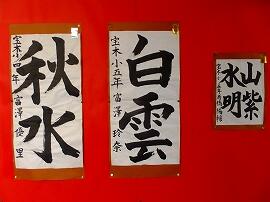 秋水
宝木小四年 富澤優里
白雲
宝木小五年 富澤玲奈
山紫
水明